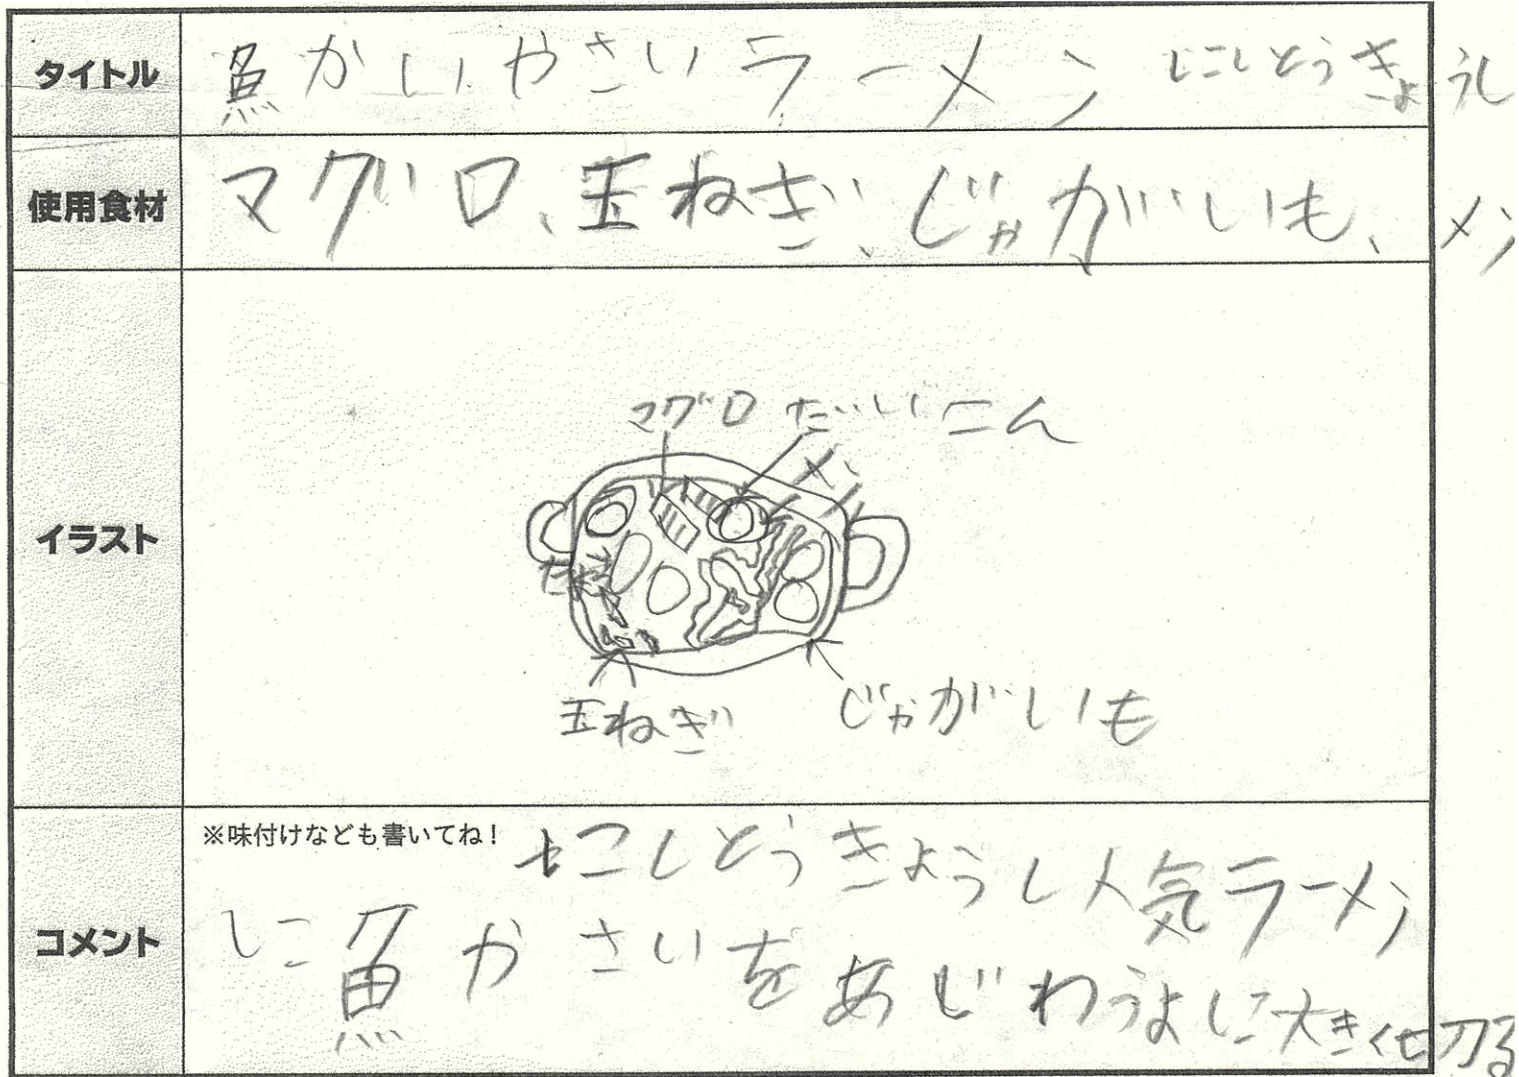 タイトル
魚かいやさいラーメン にしとうきょうし
使用食材
マグロ、玉ねぎ、じゃがいも、メン
イラスト
マグロ だいこん
メン
玉ねぎ
じゃがいも
コメント
※味付けなども書いてね!
にしとうきょうし人気ラーメン
に魚かさいをあじわうよに大きく切る